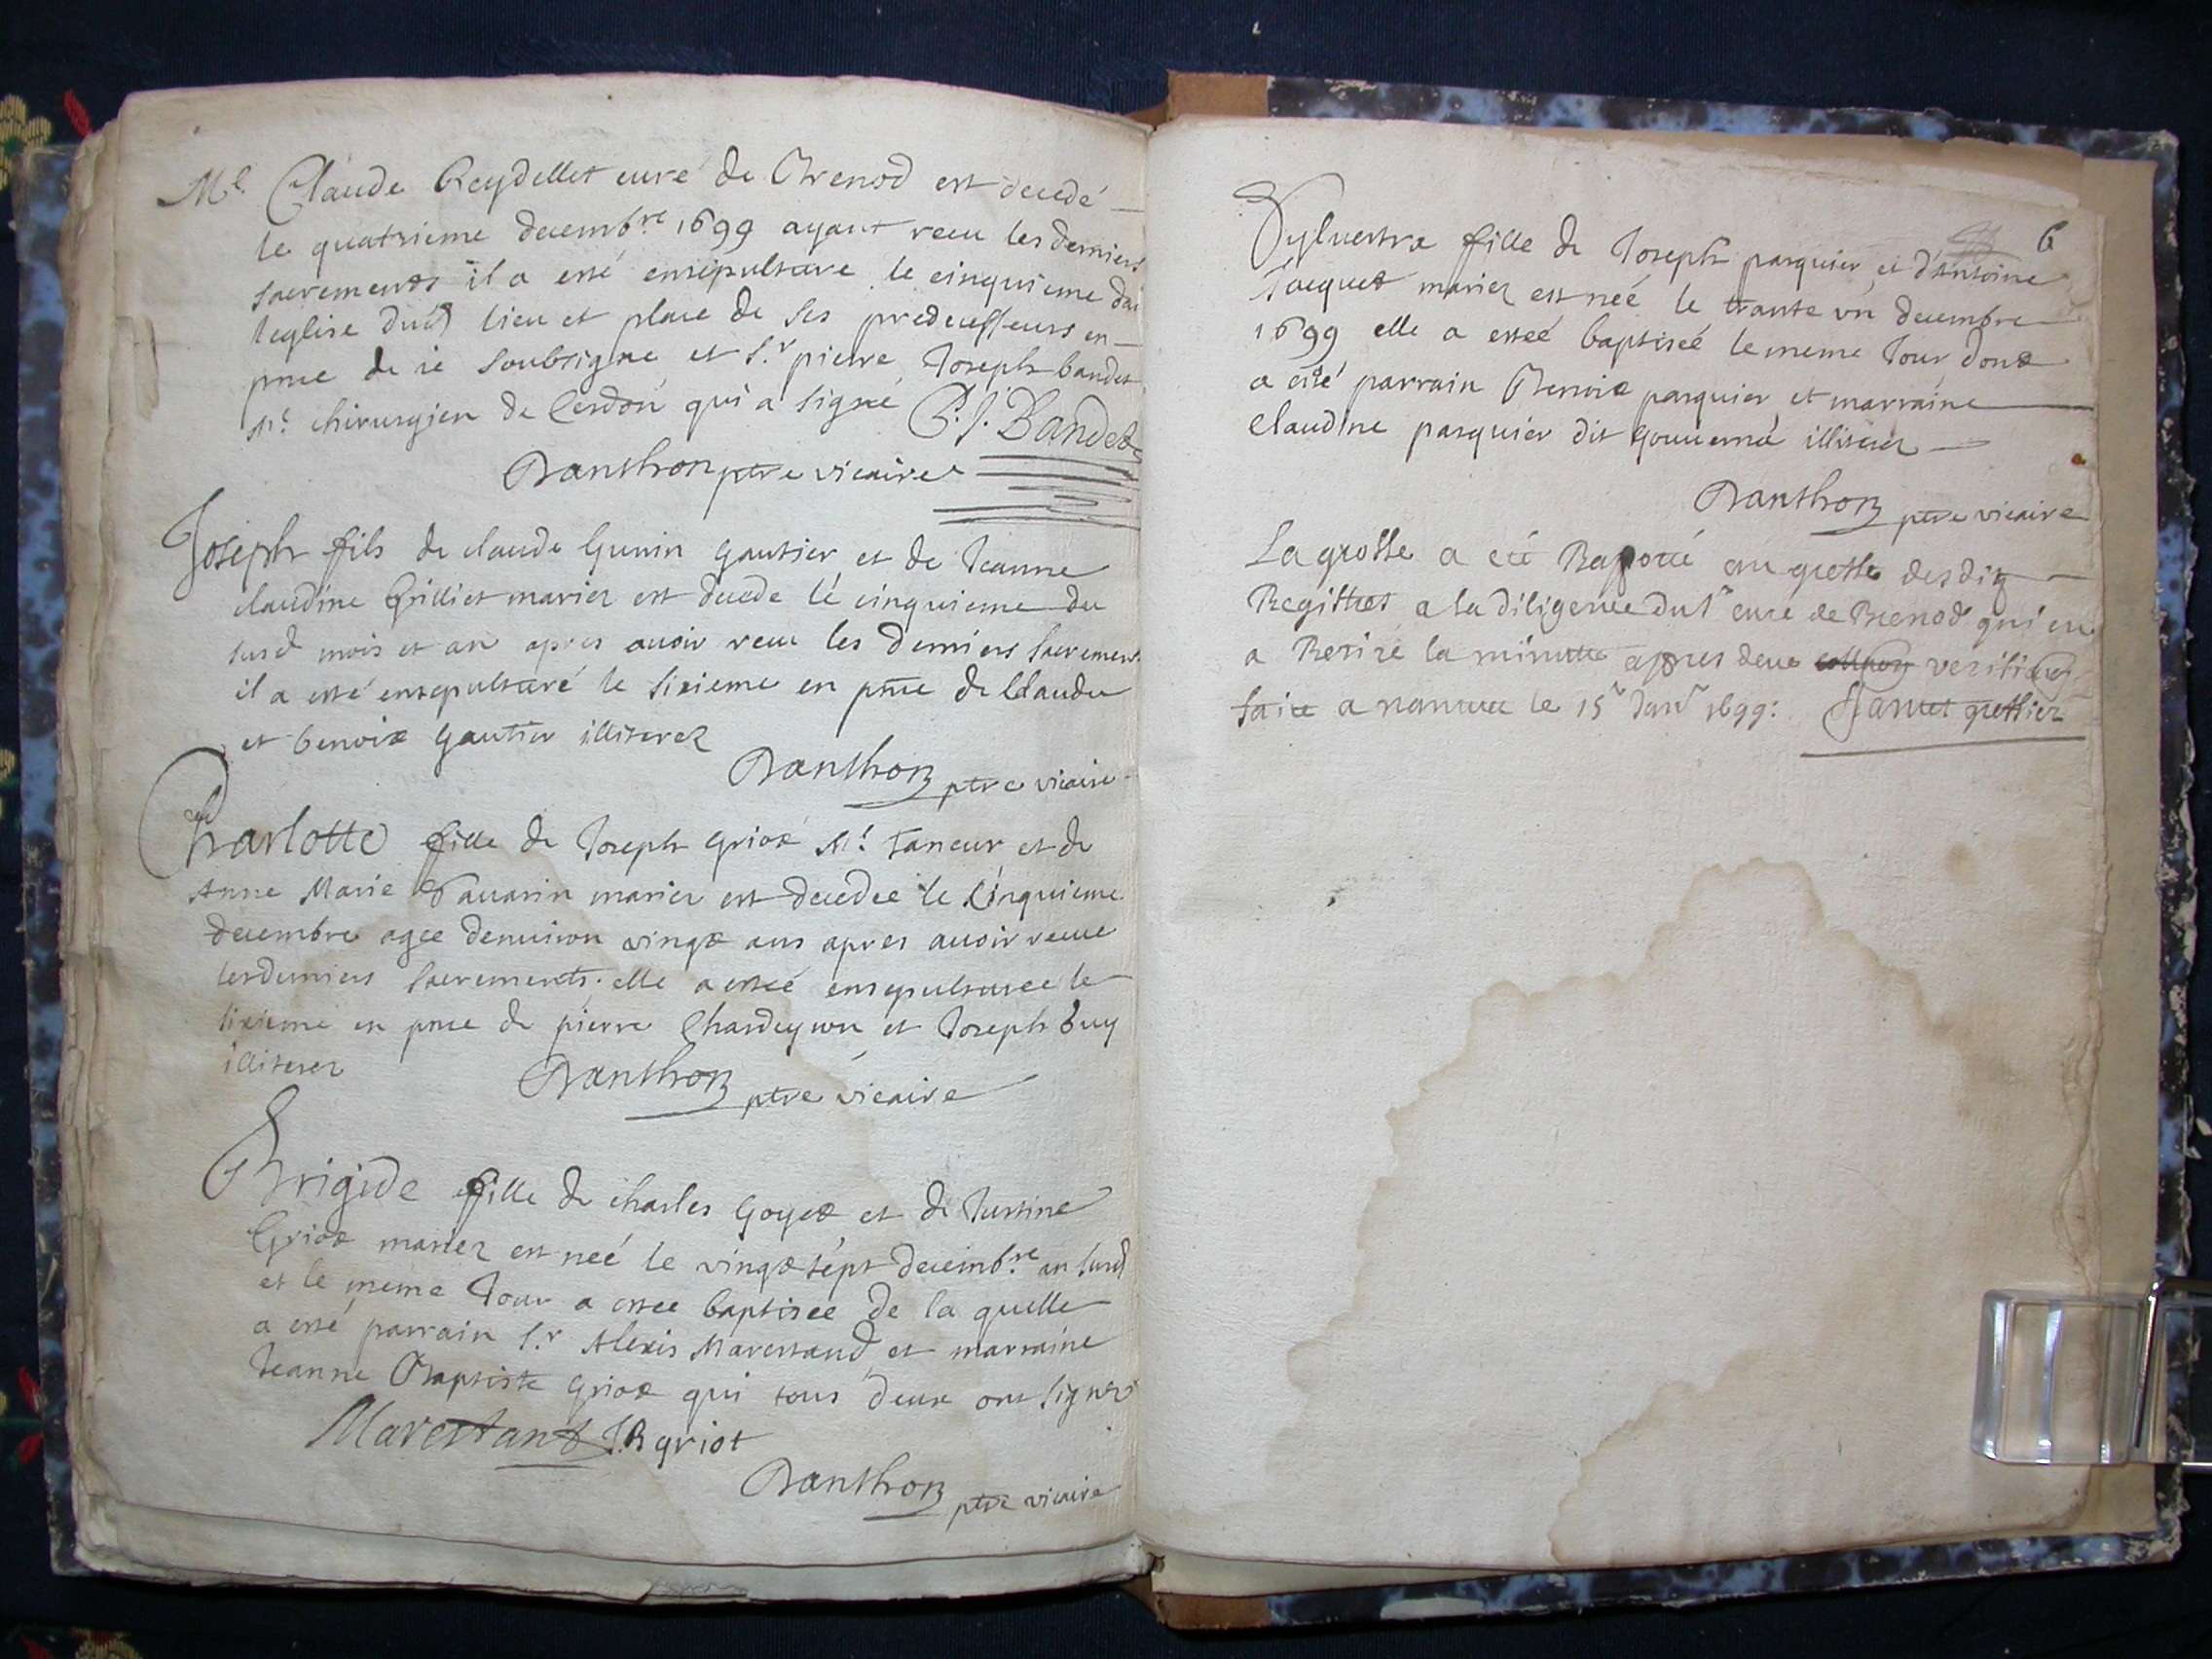 Mᵉ. Claude Reydellet curé de Brenod est decedé
le quatrieme decembʳᵉ 1699 ayant receu les derniers
sacrements il a esté ensepulturé le cinquieme dans
leglise dud lieu et place de ses predecesseurs en
pnce de ie soubsigne et Sʳ. pierre Joseph bandet
Mᵉ. chirurgien de Cerdon qui a signé P. J. Bandet
Danthon ptre vicaire
Joseph fils de claude Gunin gautier et de Jeanne
claudine Grilliet mariez est decede le cinquieme du
susd mois et an apres avoir receu les derniers sacrements
il a esté ensepulturé le sixieme en pnce de Claude
et benoist gautier illiterez
Danthon ptre vicaire
Charlotte fille de Joseph griot Mᵉ. Taneur et de
Anne Marie Savarin mariez est decedee le Cinquieme
decembre agee denuiron vingt ans apres auoir receue
les derniers sacrements elle a esteé ensepulturee le
sixieme en pnce de pierre Chardeyron et Joseph buy
illiterez Danthon ptre vicaire
Brigide fille de charles goyet et de Justine
Griot mariez est neé le vingt sept decembʳᵉ an susd
et le meme Jour a estee baptisee de la quelle
a esté parrain Sʳ. Alexis Marestand et marraine
Jeanne Baptiste griot qui tous deux ont signez
Marestant J.B griot
Danthon ptre vicaire
6
Sylvestre fille de Joseph pasquier et d'Antoine
Jacquet mariez est neé le trante un decembre
1699 elle a esteé baptiseé le meme Jour dont
a esté parrain Benoit pasquier et marraine
Claudine pasquier dit gouuerné illiterez
Danthon ptre vicaire
La grosse a eté Raporté au greffe desditz
Registres a la diligence du Sʳ curé de Brenod qui en
a Retiré la minutte apres deue verification
faite a nantua le 15ᵉ Janʳ 1699: greffier